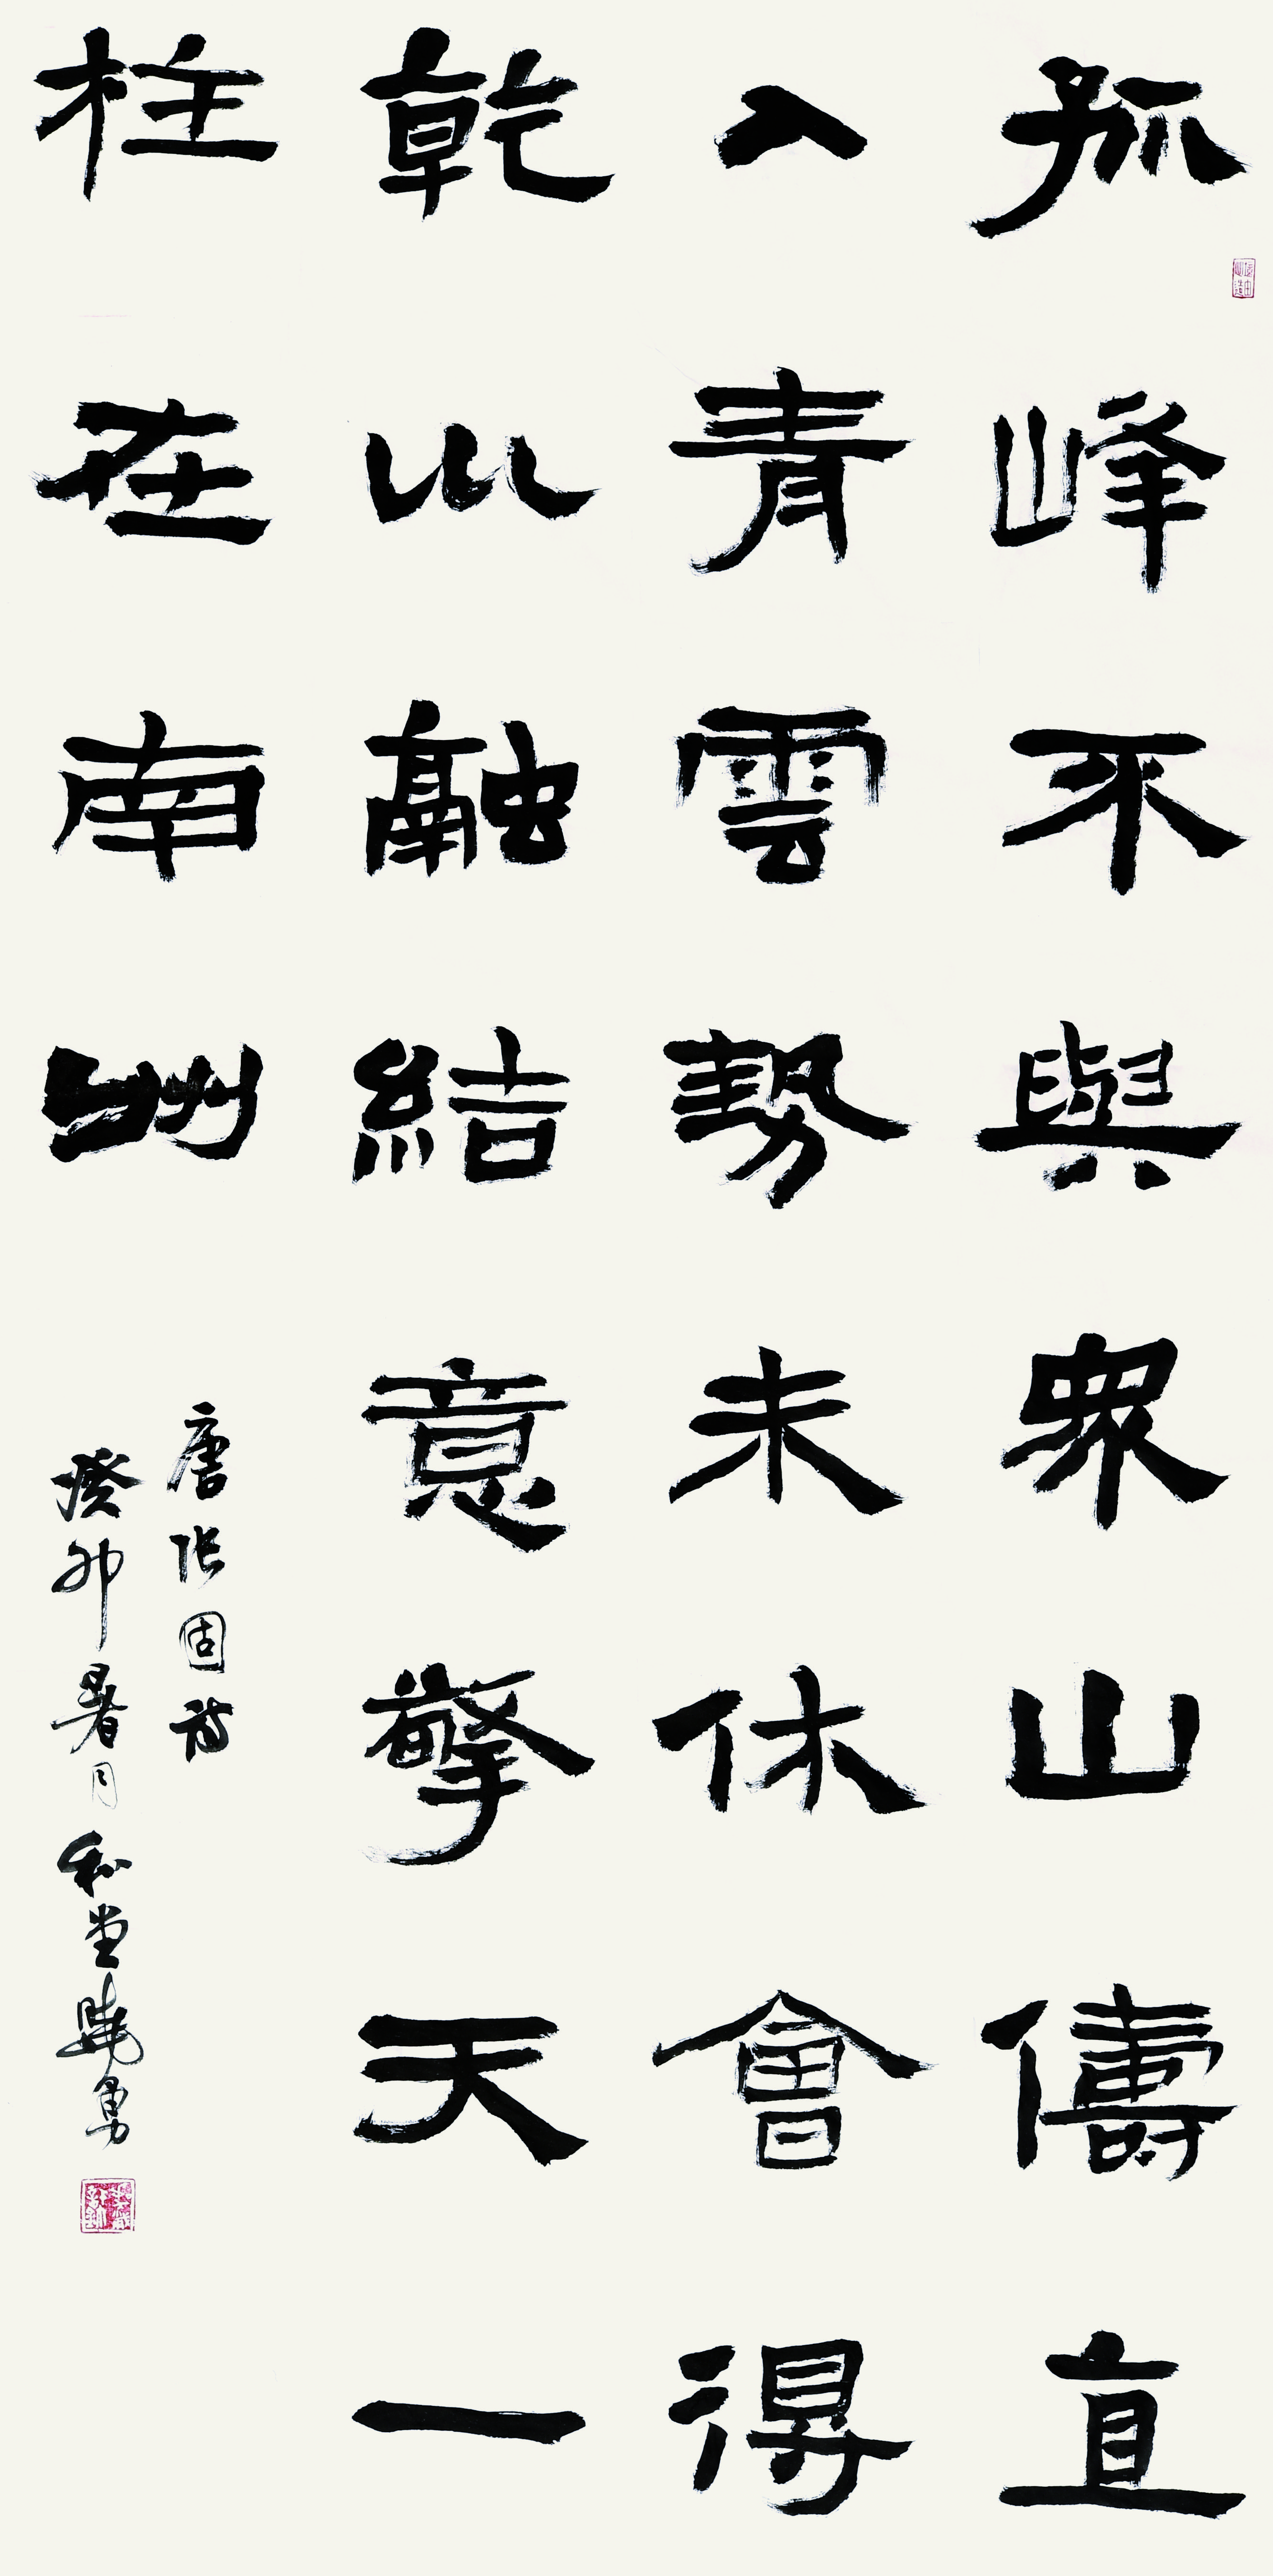 孤峰不與眾山儔直
入青雲勢未休會得
乾山融結意擎天一
柱在南州
唐张固诗
癸卯暑月和堂曉勇